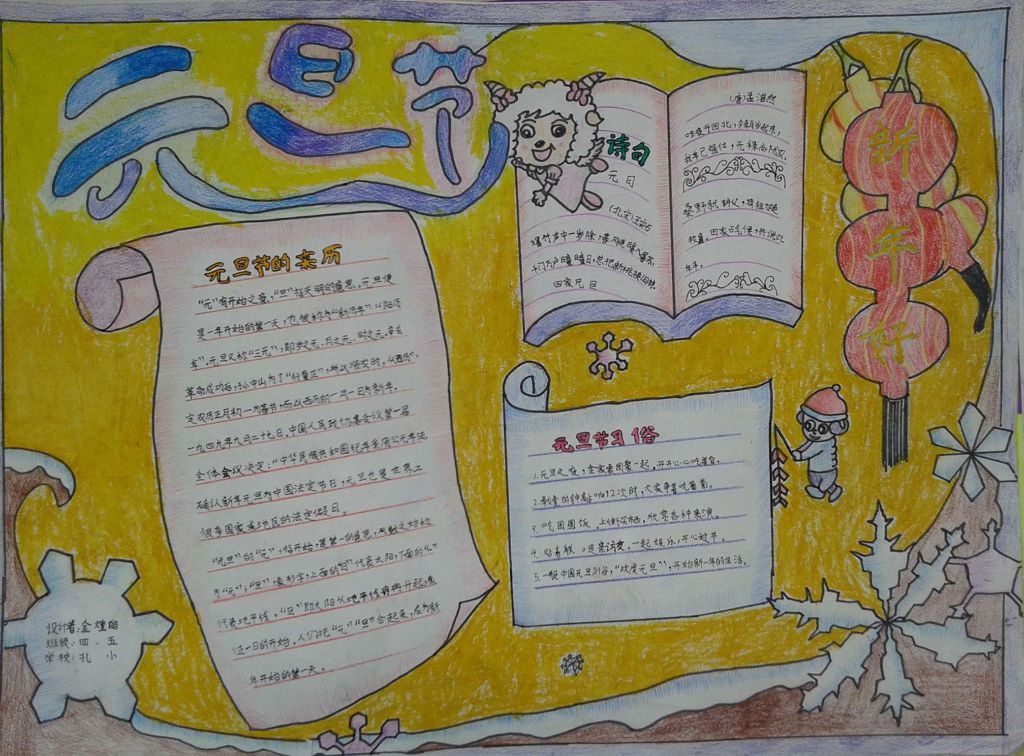 元旦节
元旦节的来历
“元”有开始之意,“旦”指天明的意思。元旦便
是一年开始的第一天,也被称为“新历年”“阳历
年”。元旦又称“三元”,即岁之元、月之元、时之元。辛亥
革命成功后,孙中山为了“行夏正”,所以顺农时,“从西历”,
定农历正月初一为春节,而以西历的一月一日为新年。
一九四九年九月二十七日,中国人民政协会议第一届
全体会议决定:“中华民共和国纪年采用公元年法
确认新年元旦为中国法定节日,元旦也是世界上
很多国家或地区的法定假日。
“元旦”的“元”,指开始,是第一的意思,凡数之始称
为“元”;“旦”象形字,上面的“日”代表太阳,下面的“一”
代表地平线。“旦”即太阳从地平线冉冉升起,象
征一日的开始。人们把“元”“旦”合起来,
年开始的第一天。
诗句
元日
(北宋)王安石
爆竹声中一岁除,春风送暖入屠苏。
千门万户曈曈日,总把新桃换旧符。
田家元日
(唐)孟浩然
昨夜斗回北,今朝岁起东,
我年已强仕,无禄尚忧农。
桑野就耕父,荷锄随
牧童。田家占气候,共说此
年丰。
新年好
元旦节习俗
1.元旦之夜,全家要团聚一起,开开心心吃
2.新年的钟敲响12次时,大家争着吃葡萄。
3.吃团圆饭,上街买栖,欣赏各种表演。
4.贴春联,走亲访友,一起娱乐,开心过节。
5.一般中国元旦习俗,“欢度元旦”,开始新一年的生活。
设计者:金煌
班级:四.五
学校:孔小